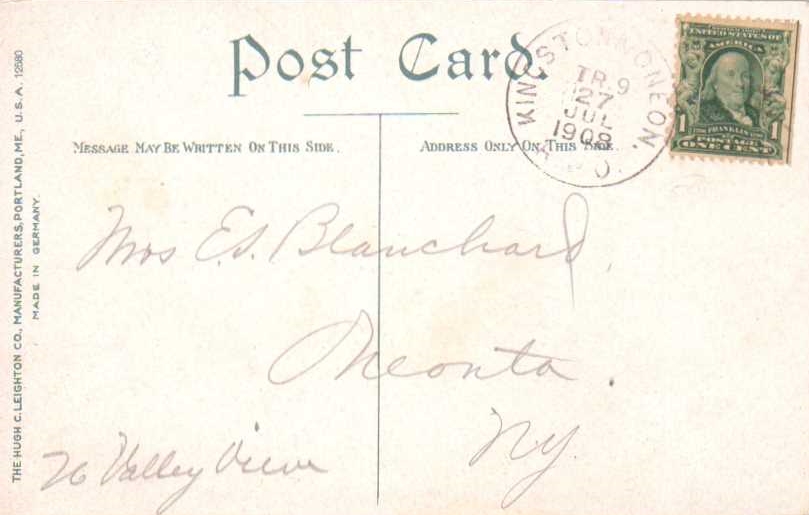 Post Card.
MESSAGE MAY BE WRITTEN ON THIS SIDE.
ADDRESS ONLY ON THIS SIDE.
KINGSTON & ONEON.
TR. 9
27
JUL
1908
R.P.O.
UNITED STATES OF
AMERICA
1 FRANKLIN 1
POSTAGE
ONE CENT
Mrs E.S. Blanchard,
Oneonta.
NY.
26 Valley View
THE HUGH C. LEIGHTON CO., MANUFACTURERS, PORTLAND, ME., U.S.A. 12680
MADE IN GERMANY.